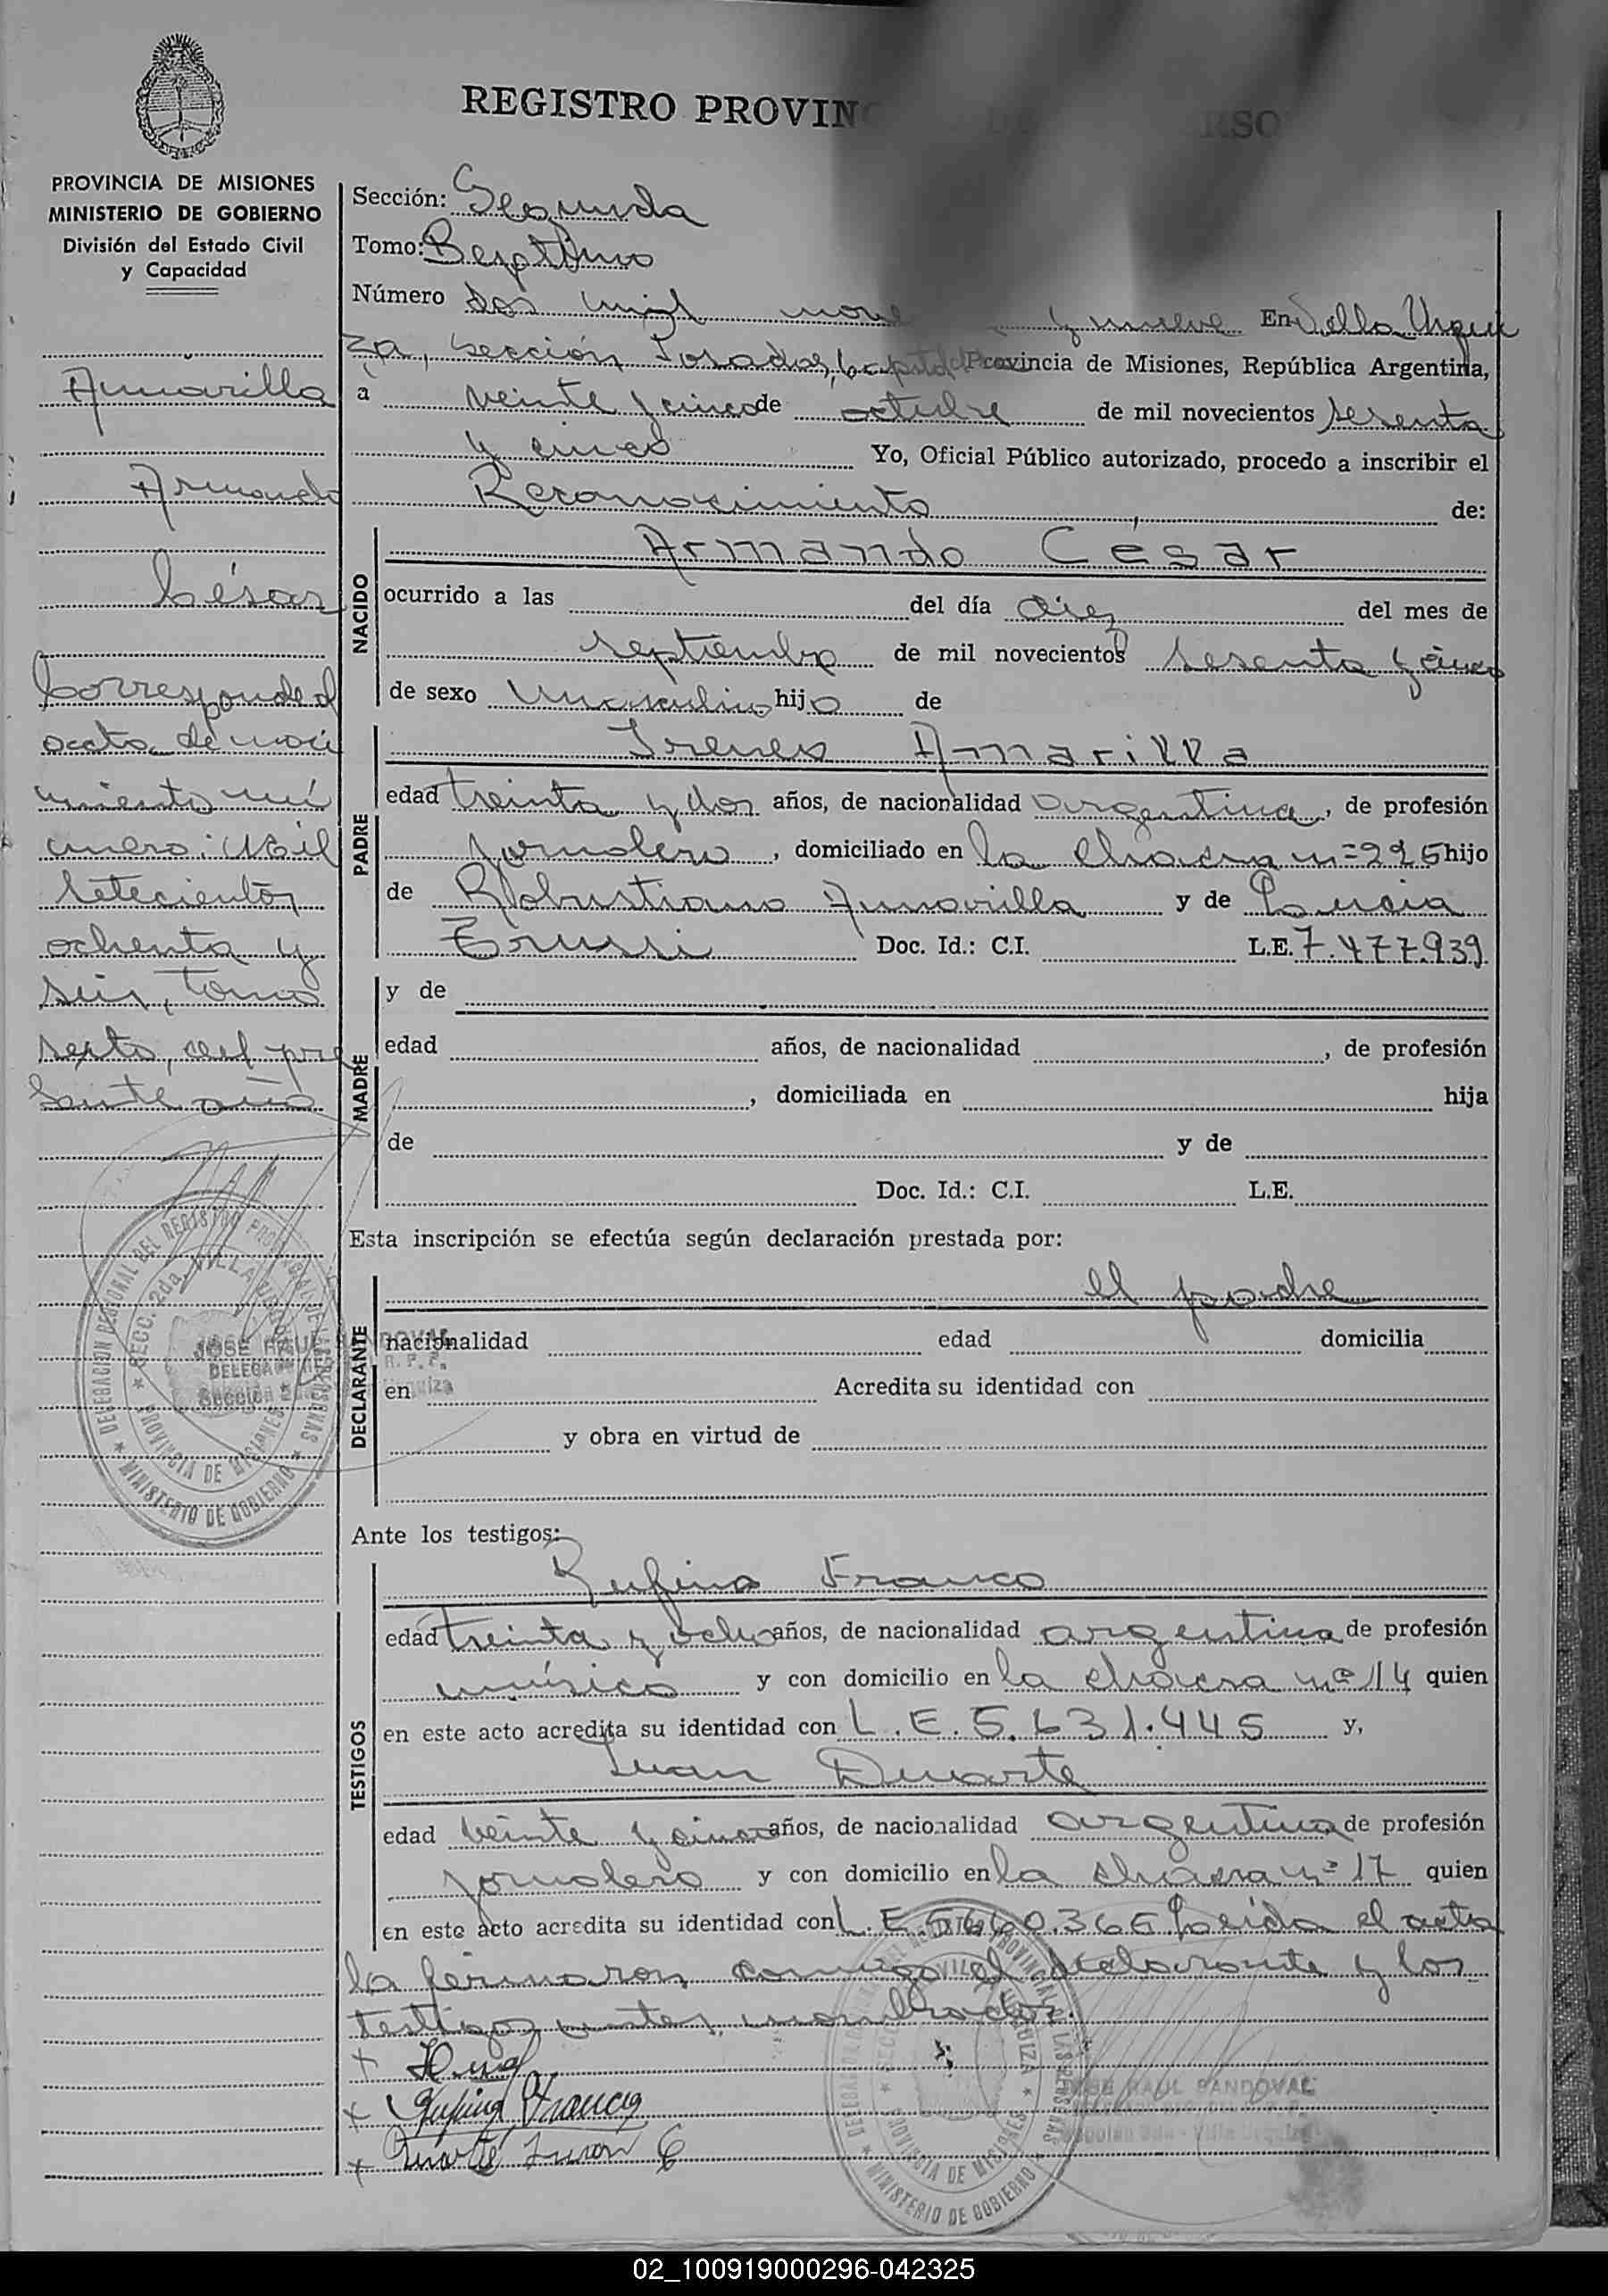 REGISTRO PROVIN
PROVINCIA DE MISIONES
MINISTERIO DE GOBIERNO
División del Estado Civil
y Capacidad
Amarilla
Armando
César
Corresponde al
acta de naci
miento nú
mero: Mil
setecientos
ochenta y
seis, Tomo
sexto, del pre
sente año
Sección: Segunda
Tomo: Septimo
Número Dos mil nove y nueve En Villa Urqui
za, sección Posadas, Capital Provincia de Misiones, República Argentina,
a veinte y cinco de octubre de mil novecientos sesenta
y cinco Yo, Oficial Público autorizado, procedo a inscribir el
Reconocimiento de:
NACIDO
Armando César
ocurrido a las del día diez del mes de
septiembre de mil novecientos sesenta y cinco
de sexo masculino hijo de
PADRE
Ireneo Amarilla
edad treinta y dos años, de nacionalidad argentina, de profesión
jornalero, domiciliado en la chacra nº 225 hijo
de Robustiano Amarilla y de Lucia
Doc. Id.: C.I. L.E. 7.477.939
MADRE
y de
edad años, de nacionalidad , de profesión
, domiciliada en hija
de y de
Doc. Id.: C.I. L.E.
Esta inscripción se efectúa según declaración prestada por:
DECLARANTE
el padre
nacionalidad edad domicilia
en Acredita su identidad con
y obra en virtud de
Ante los testigos:
TESTIGOS
Rufino Franco
edad treinta y ocho años, de nacionalidad argentina de profesión
músico y con domicilio en la chacra nº 14 quien
en este acto acredita su identidad con L.E. 5.631.445 y,
Juan Duarte
edad veinte y cinco años, de nacionalidad argentina de profesión
jornalero y con domicilio en la chacra nº 17 quien
en este acto acredita su identidad con L.E. Leida el acta
la firmaron conmigo el declarante y los
testigos antes nombrados.
Rufino Franco
Duarte Juan C
DELEGACION REGIONAL DEL REGISTRO PROVINCIAL DE LAS PERSONAS
SECC. 2da. VILLA URQUIZA
PROVINCIA DE MISIONES
MINISTERIO DE GOBIERNO
JOSE RAUL SANDOVAL
JOSE RAUL SANDOVAL
PROVINCIA DE MISIONES
MINISTERIO DE GOBIERNO
02_100919000296-042325